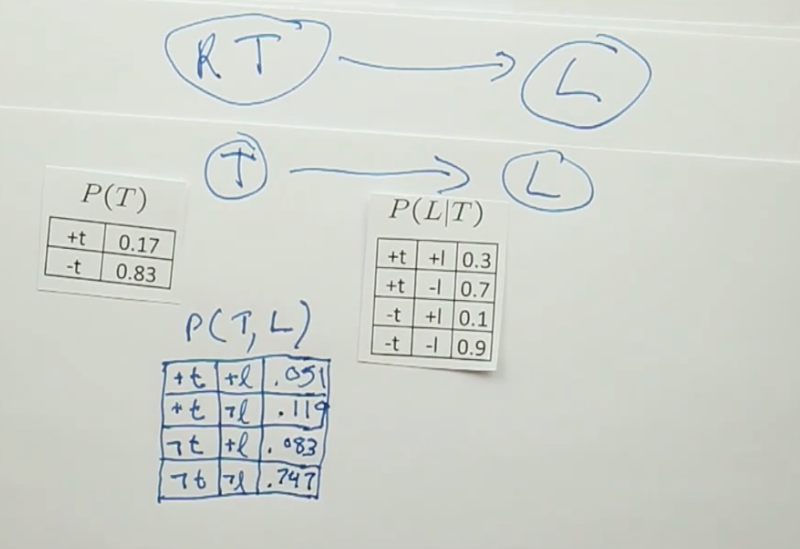 RT L
T L
P(T)
+t 0.17
-t 0.83
P(L|T)
+t +l 0.3
+t -l 0.7
-t +l 0.1
-t -l 0.9
P(T, L)
+t +l .051
+t ¬l .119
¬t +l .083
¬t ¬l .747